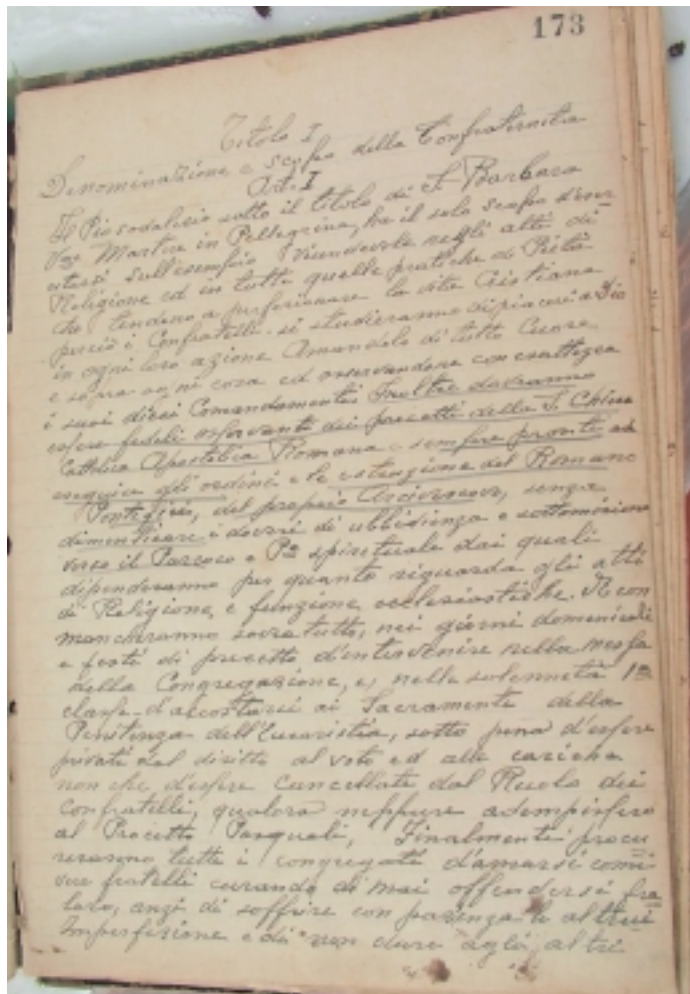 173
Titolo I
Denominazione e scopo della Confraternita
Art. I
Il Pio sodalizio sotto il titolo di S. Barbara
Vne Martire in Pellegrina, ha il solo scopo d'eser
citarsi sull'esempio vicendevole negli atti di
Religione ed in tutte quelle pratiche di Pietà
che tendono a perfezionare la vita Cristiana
perciò i Confratelli si studieranno di piacere a Dio
in ogni loro azione Amandolo di tutto Cuore
e sopra ogni cosa ed osservandone con esattezza
i suoi dieci Comandamenti Inoltre dovranno
essere fedeli osservanti dei precetti della S. Chiesa
Cattolica Apostolica Romana e sempre pronti ad
eseguire gli ordini e le istruzione del Romano
Pontefice, del proprio Arcivescovo, senza
dimenticare i doveri di ubbidienza e sottomissione
verso il Parroco e Pre spirituale dai quali
dipenderanno per quanto riguarda gli atti
di Religione e funzione ecclesiastiche. Non
mancheranno sovra tutto, nei giorni domenicali
e festi di precetto d'intervenire nella messa
della Congregazione, e, nelle solennità 1me
classe d'accostarsi ai Sacramente della
Penitenza dell'Eucaristia, sotto pena d'essere
privati del diritto al voto ed alle cariche
non che d'essere cancellati dal Ruolo dei
confratelli, qualora neppure adempissero
al Precetto Pasquali, Finalmenti procu
reranno tutti i congregati d'amarsi come
veri fratelli curando di mai offendersi fra
loro, anzi di soffrire con pazienza le altrui
Imperfezione e di non dare agli altri